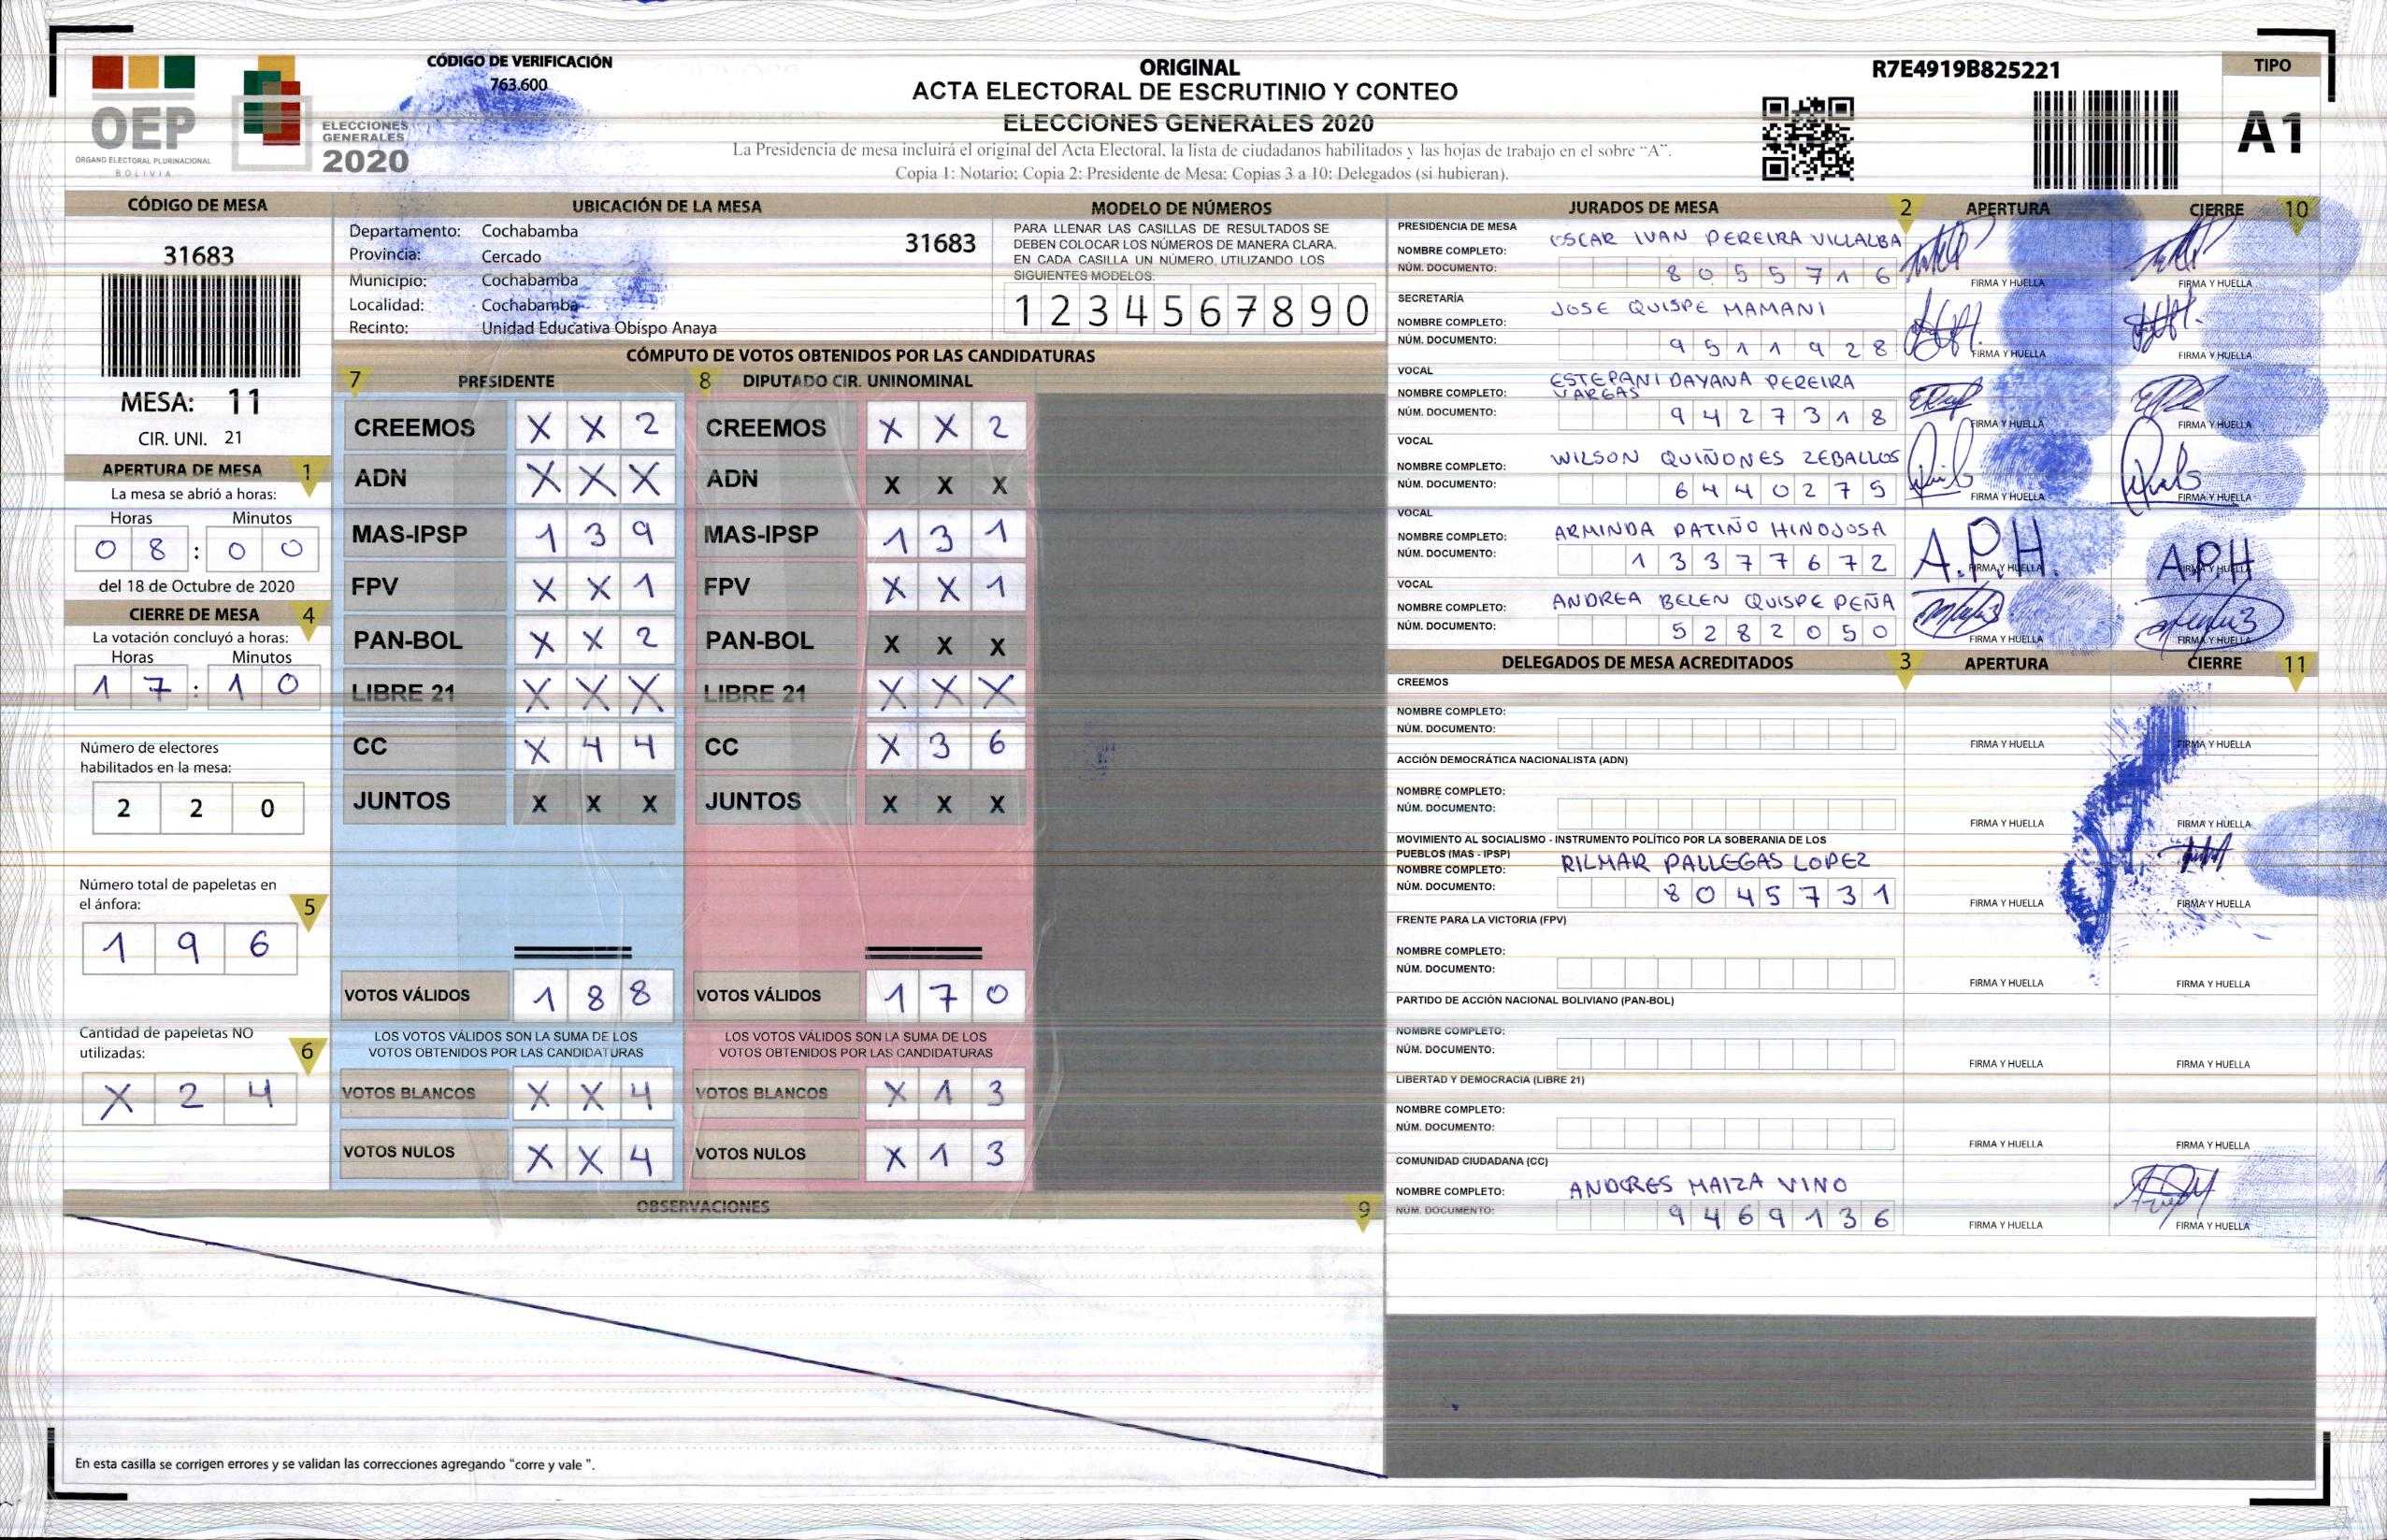 OEP
ÓRGANO ELECTORAL PLURINACIONAL
BOLIVIA
ELECCIONES
GENERALES
2020
CÓDIGO DE VERIFICACIÓN
763.600
ORIGINAL
ACTA ELECTORAL DE ESCRUTINIO Y CONTEO
ELECCIONES GENERALES 2020
La Presidencia de mesa incluirá el original del Acta Electoral, la lista de ciudadanos habilitados y las hojas de trabajo en el sobre "A".
Copia 1: Notario; Copia 2: Presidente de Mesa; Copias 3 a 10: Delegados (si hubieran).
R7E4919B825221
TIPO
A1
CÓDIGO DE MESA
31683
MESA: 11
CIR. UNI. 21
APERTURA DE MESA 1
La mesa se abrió a horas:
Horas Minutos
0 8 : 0 0
del 18 de Octubre de 2020
CIERRE DE MESA 4
La votación concluyó a horas:
Horas Minutos
1 7 : 1 0
Número de electores
habilitados en la mesa:
2 2 0
Número total de papeletas en
el ánfora:
5
1 9 6
Cantidad de papeletas NO
utilizadas:
6
X 2 4
UBICACIÓN DE LA MESA
Departamento: Cochabamba
31683
Provincia: Cercado
Municipio: Cochabamba
Localidad: Cochabamba
Recinto: Unidad Educativa Obispo Anaya
MODELO DE NÚMEROS
PARA LLENAR LAS CASILLAS DE RESULTADOS SE
DEBEN COLOCAR LOS NÚMEROS DE MANERA CLARA.
EN CADA CASILLA UN NÚMERO, UTILIZANDO LOS
SIGUIENTES MODELOS:
1 2 3 4 5 6 7 8 9 0
CÓMPUTO DE VOTOS OBTENIDOS POR LAS CANDIDATURAS
7 PRESIDENTE
CREEMOS X X 2
ADN X X X
MAS-IPSP 1 3 9
FPV X X 1
PAN-BOL X X 2
LIBRE 21 X X X
CC X 4 4
JUNTOS X X X
VOTOS VÁLIDOS 1 8 8
LOS VOTOS VÁLIDOS SON LA SUMA DE LOS
VOTOS OBTENIDOS POR LAS CANDIDATURAS
VOTOS BLANCOS X X 4
VOTOS NULOS X X 4
8 DIPUTADO CIR. UNINOMINAL
CREEMOS X X 2
ADN X X X
MAS-IPSP 1 3 1
FPV X X 1
PAN-BOL X X X
LIBRE 21 X X X
CC X 3 6
JUNTOS X X X
VOTOS VÁLIDOS 1 7 0
LOS VOTOS VÁLIDOS SON LA SUMA DE LOS
VOTOS OBTENIDOS POR LAS CANDIDATURAS
VOTOS BLANCOS X 1 3
VOTOS NULOS X 1 3
OBSERVACIONES 9
En esta casilla se corrigen errores y se validan las correcciones agregando "corre y vale ".
JURADOS DE MESA 2 APERTURA CIERRE 10
PRESIDENCIA DE MESA
NOMBRE COMPLETO: OSCAR IVAN PEREIRA VILLALBA
NÚM. DOCUMENTO: 8 0 5 5 7 1 6
FIRMA Y HUELLA FIRMA Y HUELLA
SECRETARÍA
NOMBRE COMPLETO: JOSE QUISPE MAMANI
NÚM. DOCUMENTO: 9 5 1 1 9 2 8
FIRMA Y HUELLA FIRMA Y HUELLA
VOCAL
NOMBRE COMPLETO: ESTEPANI DAYANA PEREIRA
VARGAS
NÚM. DOCUMENTO: 9 4 2 7 3 1 8
FIRMA Y HUELLA FIRMA Y HUELLA
VOCAL
NOMBRE COMPLETO: WILSON QUIÑONES ZEBALLOS
NÚM. DOCUMENTO: 6 4 4 0 2 7 5
FIRMA Y HUELLA FIRMA Y HUELLA
VOCAL
NOMBRE COMPLETO: ARMINDA PATIÑO HINOJOSA
NÚM. DOCUMENTO: 1 3 3 7 7 6 7 2
A.P.H. A.P.H
FIRMA Y HUELLA FIRMA Y HUELLA
VOCAL
NOMBRE COMPLETO: ANDREA BELEN QUISPE PEÑA
NÚM. DOCUMENTO: 5 2 8 2 0 5 0
FIRMA Y HUELLA FIRMA Y HUELLA
DELEGADOS DE MESA ACREDITADOS 3 APERTURA CIERRE 11
CREEMOS
NOMBRE COMPLETO:
NÚM. DOCUMENTO:
FIRMA Y HUELLA FIRMA Y HUELLA
ACCIÓN DEMOCRÁTICA NACIONALISTA (ADN)
NOMBRE COMPLETO:
NÚM. DOCUMENTO:
FIRMA Y HUELLA FIRMA Y HUELLA
MOVIMIENTO AL SOCIALISMO - INSTRUMENTO POLÍTICO POR LA SOBERANIA DE LOS
PUEBLOS (MAS - IPSP)
NOMBRE COMPLETO: RILMAR PALLEGAS LOPEZ
NÚM. DOCUMENTO: 8 0 4 5 7 3 1
FIRMA Y HUELLA FIRMA Y HUELLA
FRENTE PARA LA VICTORIA (FPV)
NOMBRE COMPLETO:
NÚM. DOCUMENTO:
FIRMA Y HUELLA FIRMA Y HUELLA
PARTIDO DE ACCIÓN NACIONAL BOLIVIANO (PAN-BOL)
NOMBRE COMPLETO:
NÚM. DOCUMENTO:
FIRMA Y HUELLA FIRMA Y HUELLA
LIBERTAD Y DEMOCRACIA (LIBRE 21)
NOMBRE COMPLETO:
NÚM. DOCUMENTO:
FIRMA Y HUELLA FIRMA Y HUELLA
COMUNIDAD CIUDADANA (CC)
NOMBRE COMPLETO: ANDRES MAIZA VINO
NÚM. DOCUMENTO: 9 4 6 9 1 3 6
FIRMA Y HUELLA FIRMA Y HUELLA